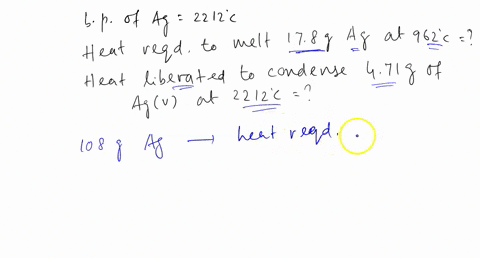 b.p. of Ag = 2212°c
Heat reqd. to melt 17.8 g Ag at 962°c = ?
Heat liberated to condense 4.71 g of
Ag(v) at 2212°c = ?
108 g Ag → heat reqd.